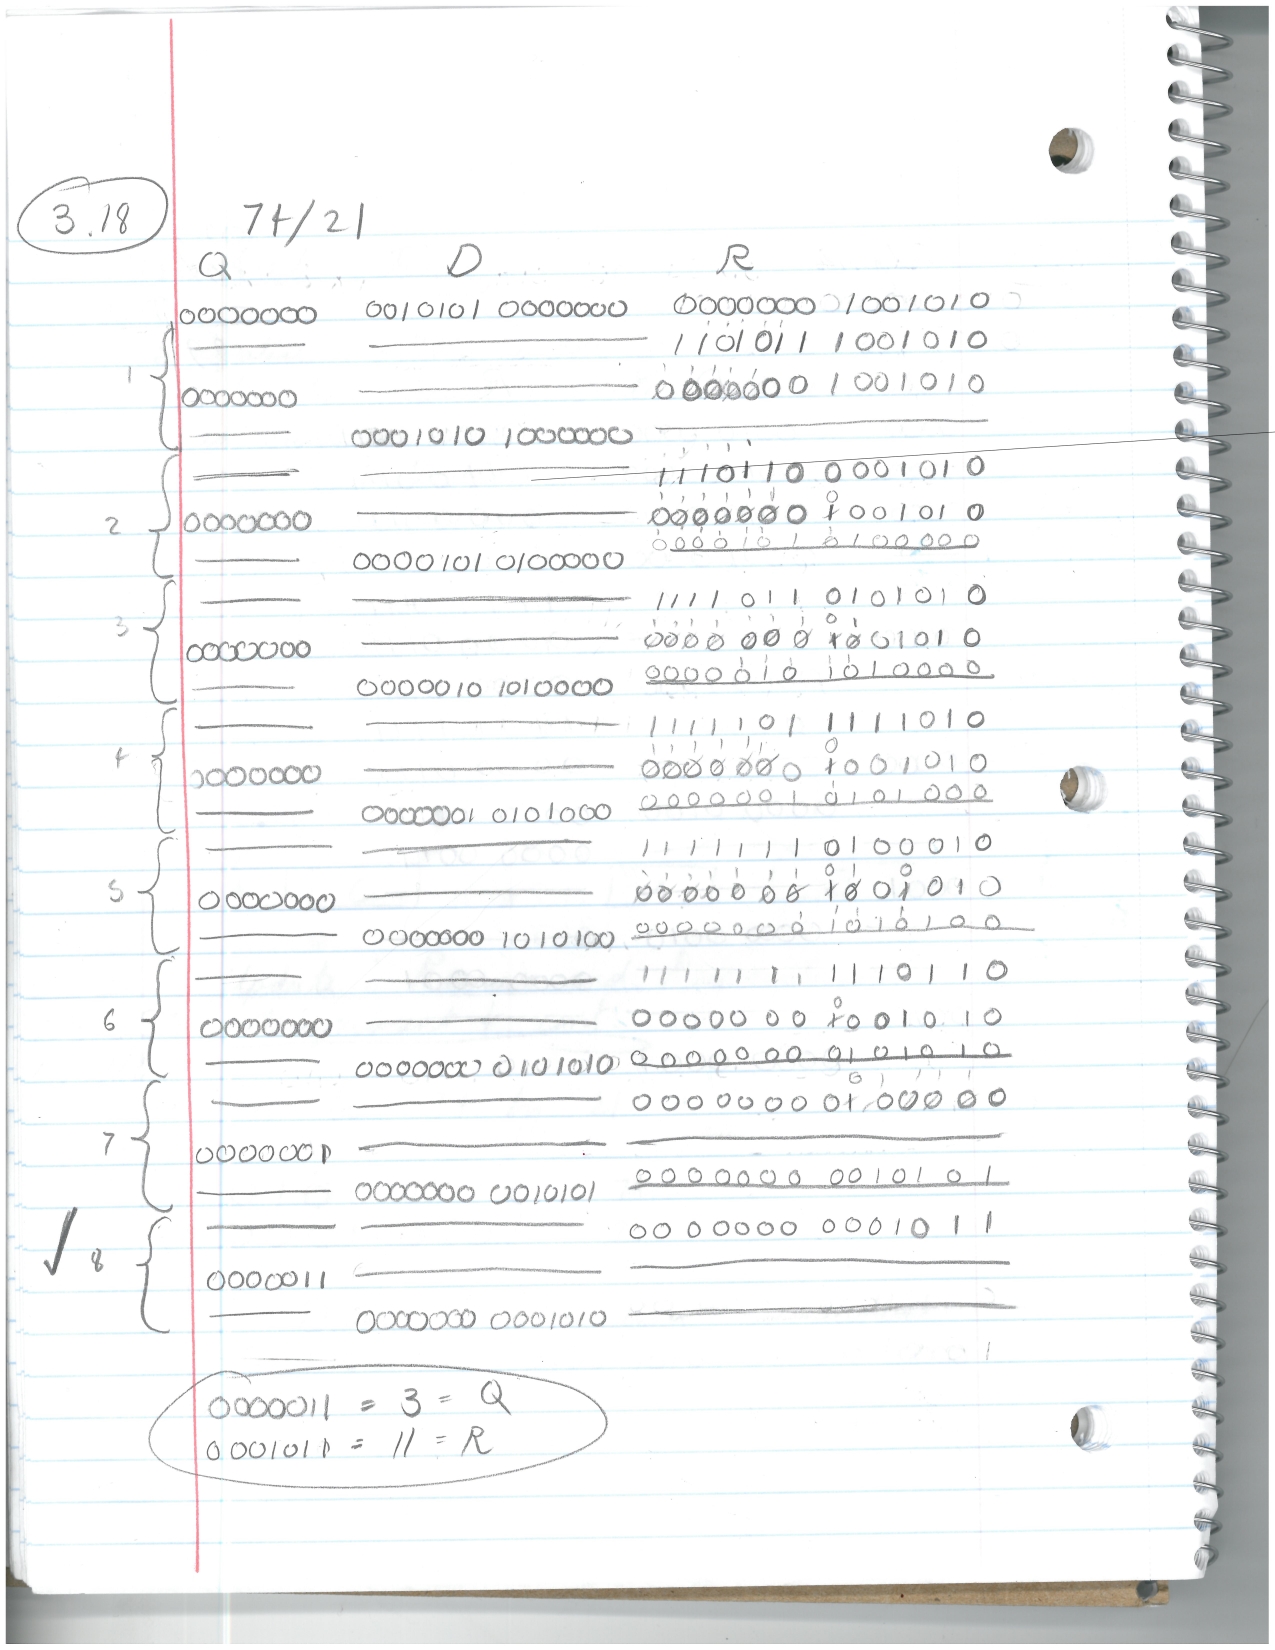 3.18 74/21
Q D R
0000000 0010101 0000000 0000000 1001010
1101011 1001010
1 0000000 0000000 1001010
0001010 1000000
1110110 0001010
2 0000000 0000000 1001010
0000101 0100000 0000101 0100000
1111011 0101010
3 0000000 0000000 1001010
0000010 1010000 0000010 1010000
1111101 1111010
4 0000000 0000000 1001010
0000001 0101000 0000001 0101000
1111111 0100010
5 0000000 0000000 1001010
0000000 1010100 0000000 1010100
1111111 1110110
6 0000000 0000000 1001010
0000000 0101010 0000000 0101010
0000000 0100000
7 0000001
0000000 0010101 0000000 0010101
0000000 0001011
✓ 8 0000011
0000000 0001010
0000011 = 3 = Q
0001011 = 11 = R